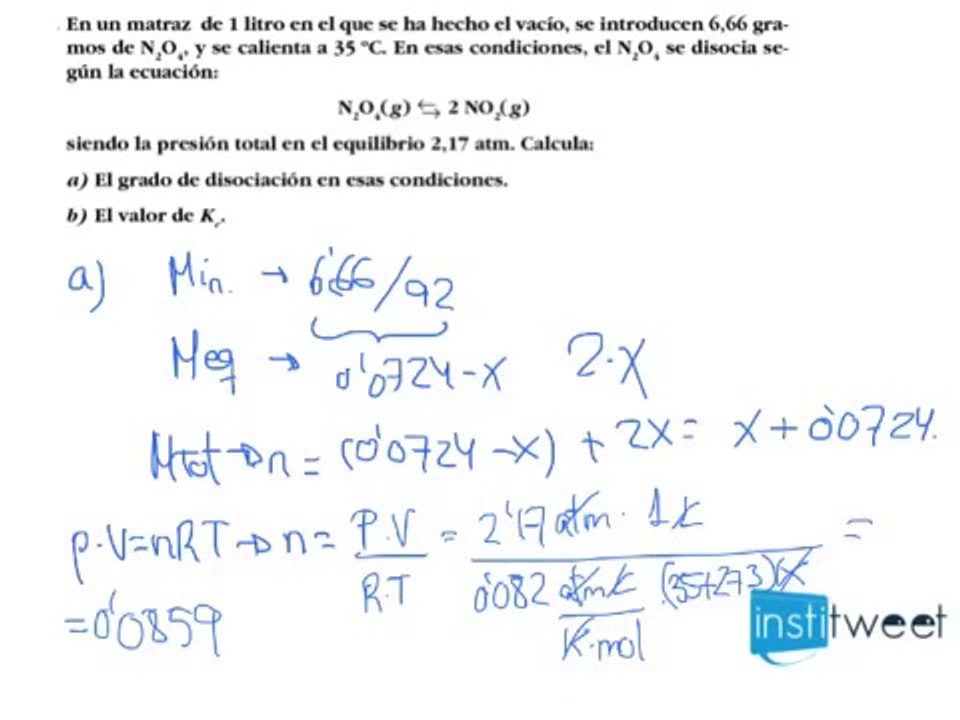 En un matraz de 1 litro en el que se ha hecho el vacío, se introducen 6,66 gra-
mos de N₂O₄, y se calienta a 35 °C. En esas condiciones, el N₂O₄ se disocia se-
gún la ecuación:
N₂O₄(g) ⇆ 2 NO₂(g)
siendo la presión total en el equilibrio 2,17 atm. Calcula:
a) El grado de disociación en esas condiciones.
b) El valor de K꜀.
a) Min. → 6'66/92
Meq → 0'0724-x 2·x
Mtot → n = (0'0724-x) + 2x = x + 0'0724.
p·V=nRT → n = P.V / R.T = 2'17 atm · 1 L / 0'082 atm L / K·mol · (35+273) K =
= 0'0859
institweet